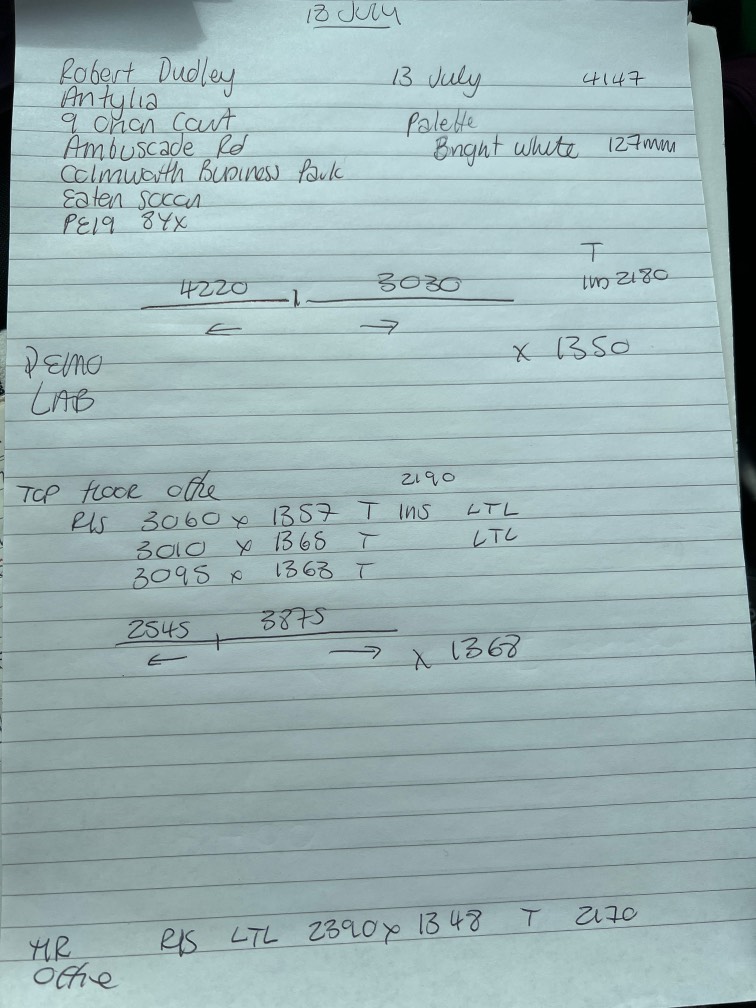 13 JULY
Robert Dudley 13 July 4147
Antylia
9 Orion Court Palette
Ambuscade Rd Bright white 127mm
Colmworth Business Park
Eaton Socon
PE19 8YX
T
4220 3030 Ins 2180
← →
x 1350
DEMO
LAB
2190
TOP FLOOR office
R/S 3060 x 1357 T Ins LTL
3010 x 1365 T LTL
3095 x 1363 T
2545 3875
← → x 1368
HR R/S LTL 2390 x 1348 T 2170
Office